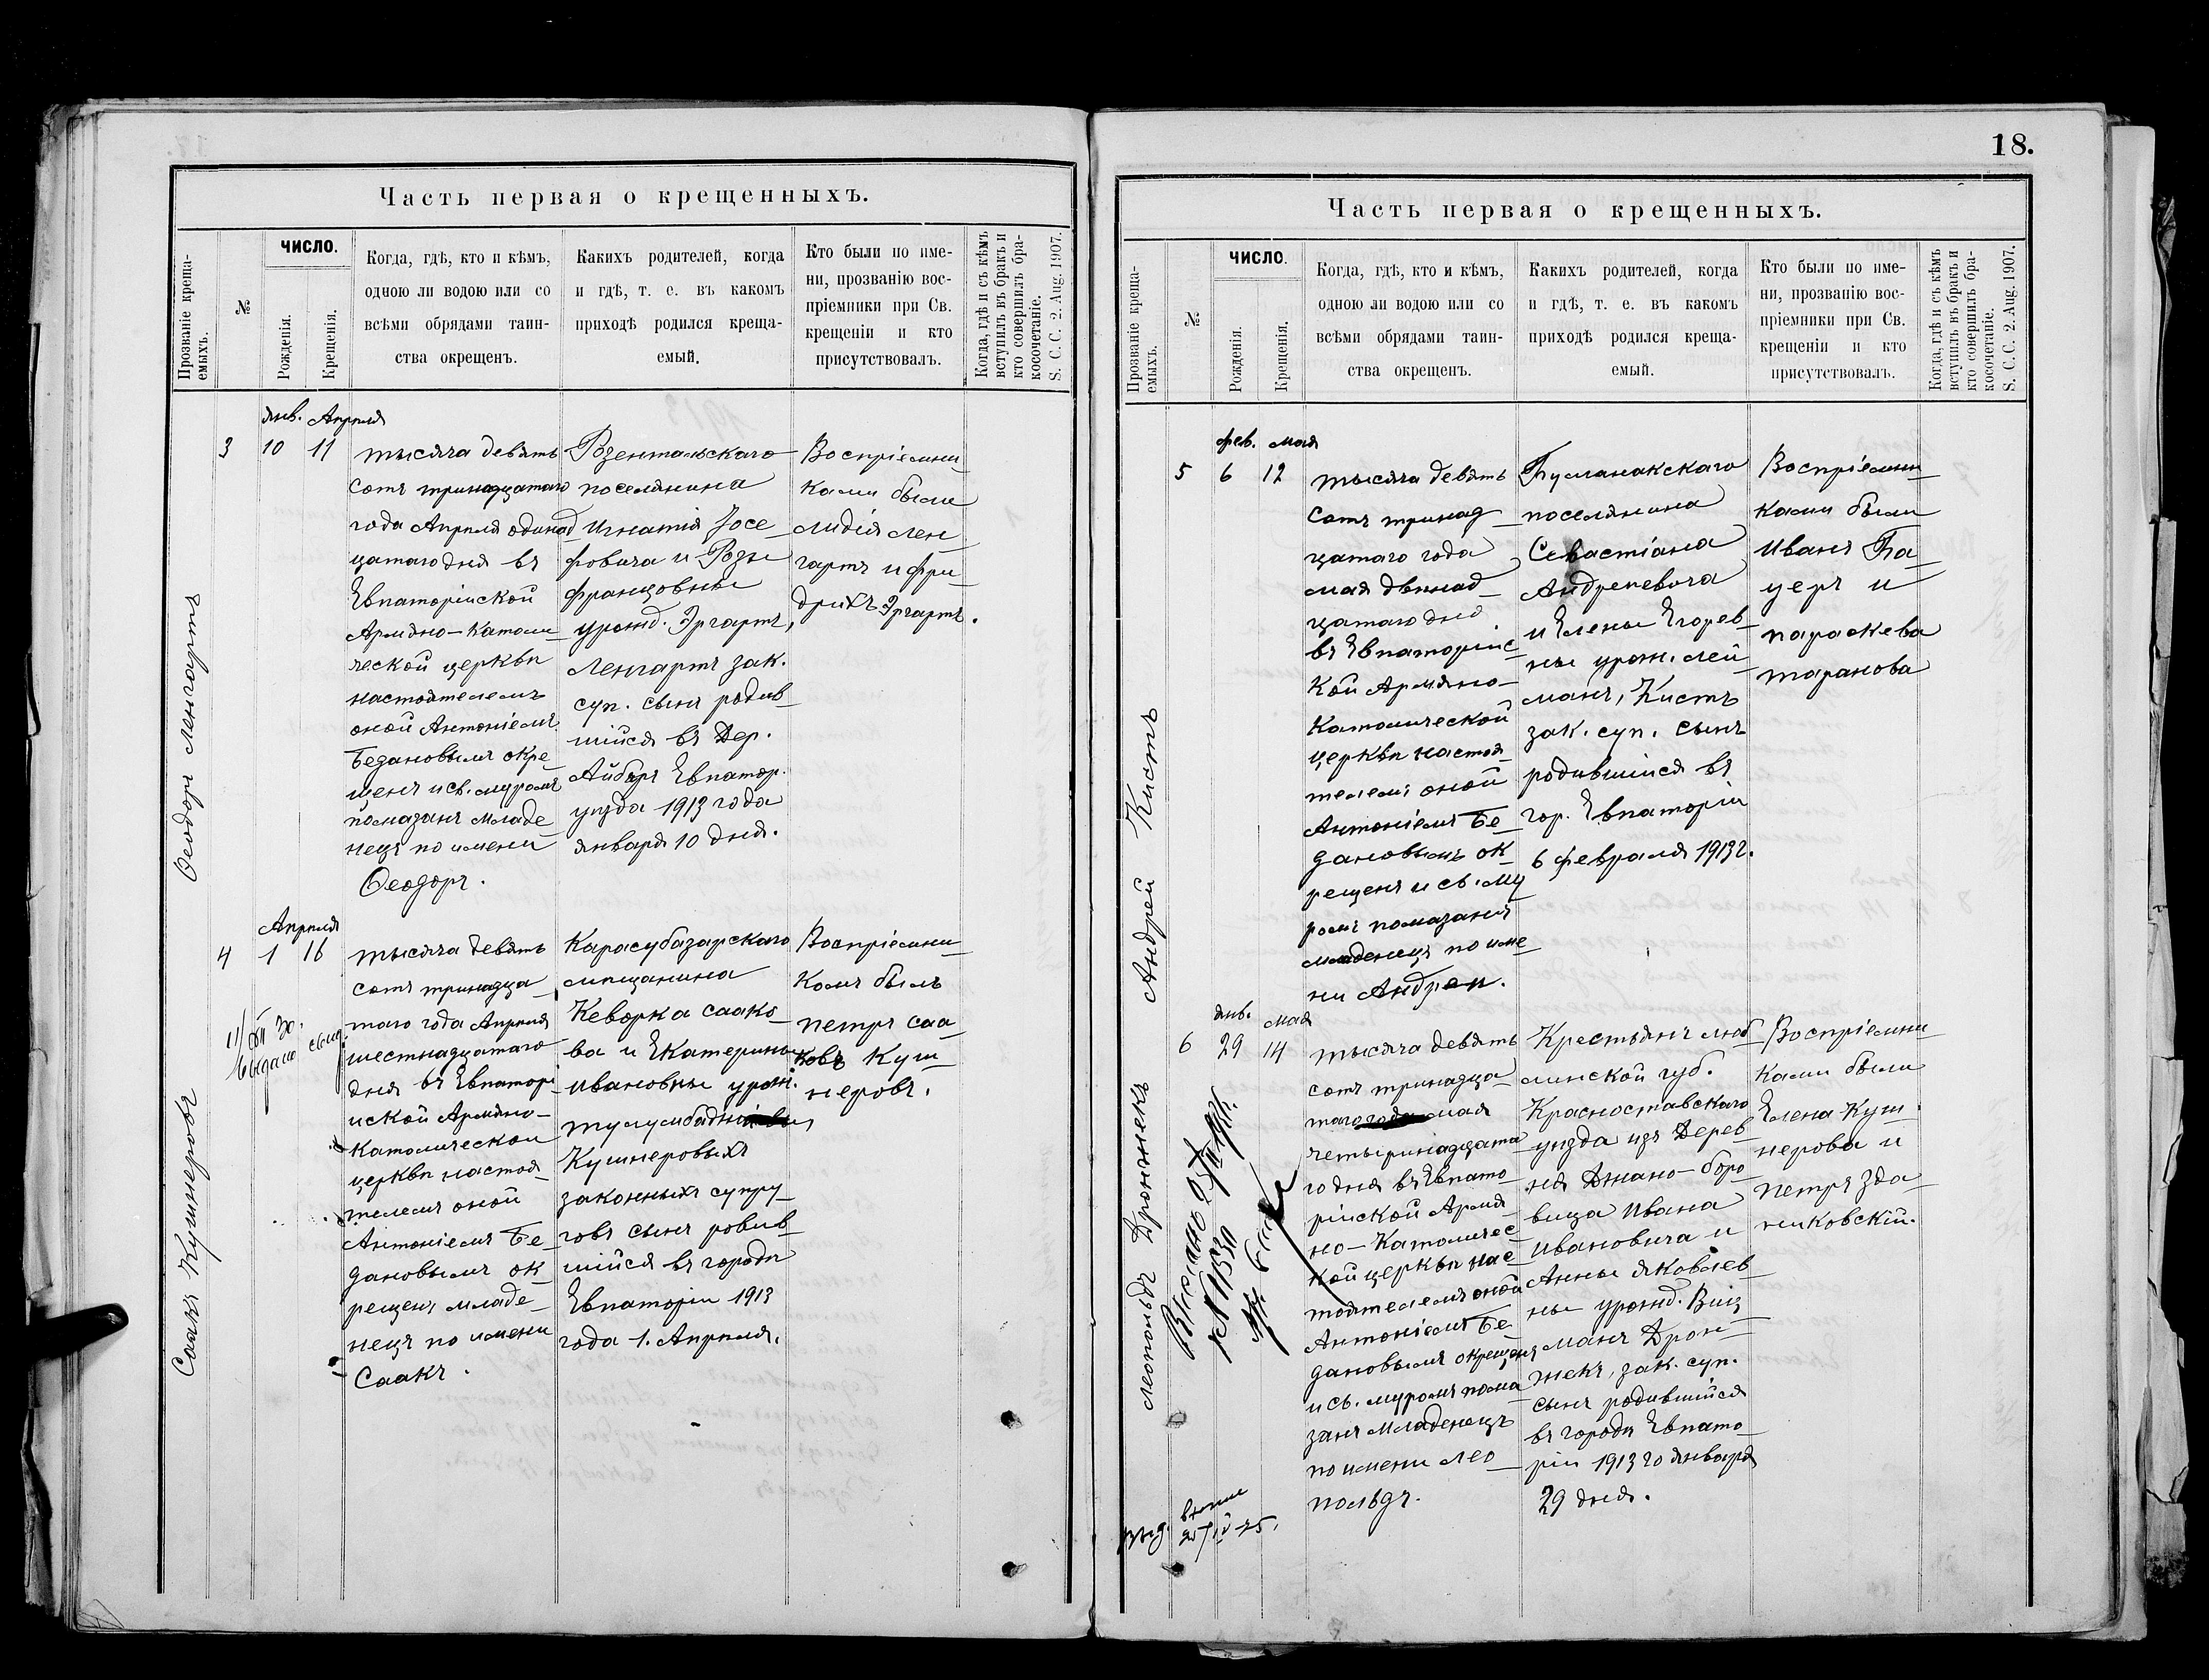 Часть первая о крещенныхъ.
Прозваніе креща-
емыхъ.
№
ЧИСЛО.
Рожденія.
Крещенія.
Когда, гдѣ, кто и кѣмъ,
одною ли водою или со
всѣми обрядами таин-
ства окрещенъ.
Какихъ родителей, когда
и гдѣ, т. е. въ какомъ
приходѣ родился креща-
емый.
Кто были по име-
ни, прозванію вос-
пріемники при Св.
крещеніи и кто
присутствовалъ.
Когда, гдѣ и съ кѣмъ
вступилъ въ бракъ и
кто совершилъ бра-
косочетаніе.
S. C. C. 2. Aug. 1907.
Ѳеодоръ Ленгартъ
янв. Апрѣля
3 10 11
тысяча девять
сотъ тринадцатаго
года Апрѣля одинад
цатаго дня въ
Евпаторійской
Армяно-Католи
ческой церкви
настоятелемъ
оной Антоніемъ
Бедановымъ окре
щенъ и св. муромъ
помазанъ младе
нецъ по имени
Ѳеодоръ.
Розентальскаго
поселянина
Игнатія Іосе
фовича и Розы
Францовны
урожд. Эргартъ,
Ленгартъ зак.
суп. сынъ родив
шійся въ Дер.
Айбаръ Евпатор.
уѣзда 1913 года
января 10 дня.
Воспріемни
ками были
Лидія Лен
гартъ и Фри
дрихъ Эргартъ.
Саакъ Кушнеровъ
Апрѣля
4 1 16
11/XII 30.
Выдано свид.
тысяча девять
сотъ тринадца
таго года Апрѣля
шестнадцатаго
дня въ Евпаторі
йской Армяно-
Католической
церкви настоя
телемъ оной
Антоніемъ Бе
дановымъ ок
рещенъ младе
нецъ по имени
Саакъ.
Карасубазарскаго
мѣщанина
Кеворка Саако
ва и Екатерины
Ивановны урож.
Кушнеровыхъ
законныхъ супру
говъ сынъ родив
шійся въ городѣ
Евпаторіи 1913
года 1. Апрѣля.
Воспріемни
комъ былъ
Петръ Саа
ковъ Куш
неровъ.
18.
Часть первая о крещенныхъ.
Прозваніе креща-
емыхъ.
№
ЧИСЛО.
Рожденія.
Крещенія.
Когда, гдѣ, кто и кѣмъ,
одною ли водою или со
всѣми обрядами таин-
ства окрещенъ.
Какихъ родителей, когда
и гдѣ, т. е. въ какомъ
приходѣ родился креща-
емый.
Кто были по име-
ни, прозванію вос-
пріемники при Св.
крещеніи и кто
присутствовалъ.
Когда, гдѣ и съ кѣмъ
вступилъ въ бракъ и
кто совершилъ бра-
косочетаніе.
S. C. C. 2. Aug. 1907.
Андрей Кистъ
фев. мая
5 6 12
тысяча девять
сотъ тринад
цатаго года
мая двѣнад
цатаго дня
въ Евпаторійс
кой Армяно-
Католической
церкви настоя
телемъ оной
Антоніемъ Бе
дановымъ ок
рещенъ и св. му
ромъ помазанъ
младенецъ по име
ни Андрей.
поселянина
Севастіана
Андреевича
и Елены Егоров
ны урож. Лей
манъ, Кистъ
зак. суп. сынъ
родившійся въ
гор. Евпаторіи
6 февраля 1913 г.
Воспріемни
ками были
Иванъ Ба
уеръ и
Параскева
Таранова
Леопольдъ Дрончекъ
янв. мая
6 29 14
Выслано
№ 153
тысяча девять
сотъ тринадца
таго мая
четыринадцата
го дня въ Евпато
рійской Армя
но-Католичес
кой церкви нас
тоятелемъ оной
Антоніемъ Бе
дановымъ окрещенъ
и св. муромъ пома
занъ младенецъ
по имени Лео
польдъ.
Крестьянъ люб
линской губ.
Красноставскаго
уѣзда изъ Дерев
ня
вица Ивана
Ивановича и
Анны Яковлев
ны урожд. Виц
манъ Дрон
чекъ, зак. суп.
сынъ родившійся
въ городѣ Евпато
ріи 1913 го января
29 дня.
Воспріемни
ками были
Елена Куш
нерова и
Петръ Зда
никовскій.
Выд.